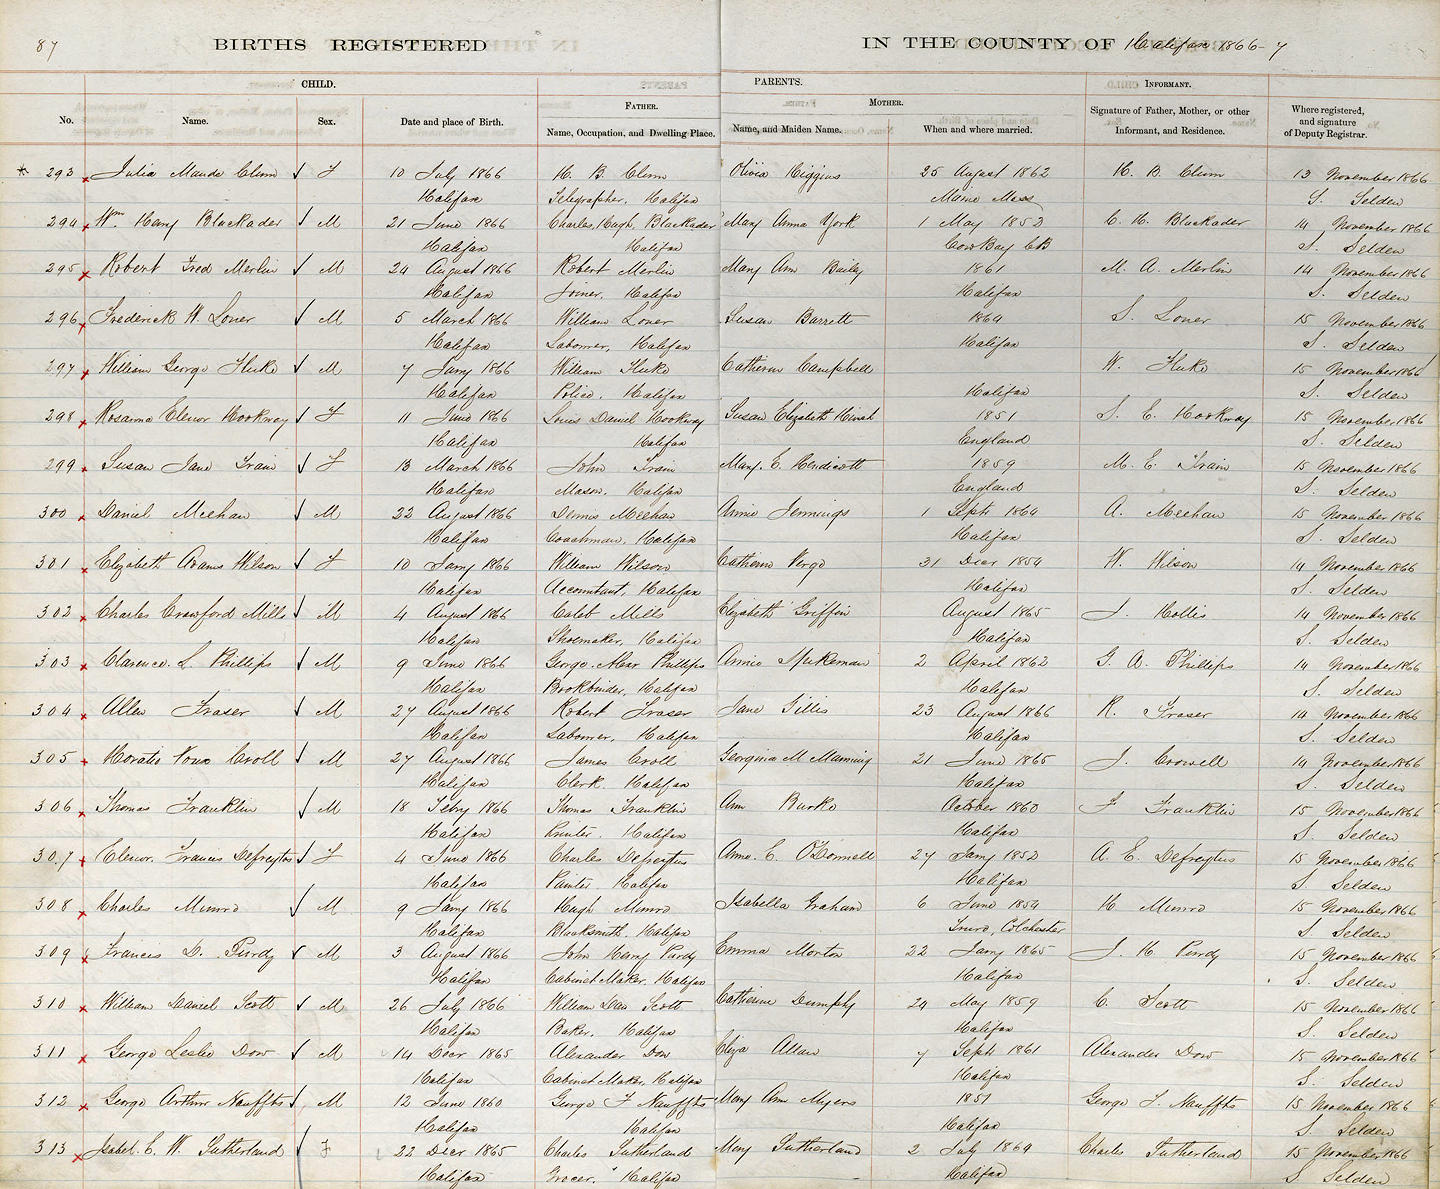 87 BIRTHS REGISTERED IN THE COUNTY OF Halifax 1866-7
CHILD. PARENTS. INFORMANT.
No. Name. Sex. Date and place of Birth. FATHER. Name, Occupation, and Dwelling Place. MOTHER. Name, and Maiden Name. When and where married. Signature of Father, Mother, or other Informant, and Residence. Where registered, and signature of Deputy Registrar.
293 Julia Maude Clinn F 10 July 1866 H. B. Clinn Olivia Higgins 25 August 1862 H. B. Clinn 13 November 1866
Halifax Telegrapher, Halifax Mass S. Selden
294 Wm Henry Blackader M 21 June 1866 Charles Hugh Blackader Mary Anna York 1 May 1852 C. H. Blackader 14 November 1866
Halifax Halifax Cow Bay CB S. Selden
295 Robert Fred Merlin M 24 August 1866 Robert Merlin Mary Ann Bailey 1861 M. A. Merlin 14 November 1866
Halifax Joiner, Halifax Halifax S. Selden
296 Frederick W. Loner M 5 March 1866 William Loner Susan Barrett 1864 S. Loner 15 November 1866
Halifax Labourer, Halifax Halifax S. Selden
297 William George Fluke M 7 Jany 1866 William Fluke Catherine Campbell W. Fluke 15 November 1866
Halifax Police, Halifax Halifax S. Selden
298 Rosanna Elenor Hookway F 11 June 1866 Louis Daniel Hookway Susan Elizabeth 1851 S. E. Hookway 15 November 1866
Halifax Halifax England S. Selden
299 Susan Jane Train F 13 March 1866 John Train Mary. E. Hendicott 1859 M. E. Train 15 November 1866
Halifax Mason, Halifax England S. Selden
300 Daniel Meehan M 22 August 1866 Dennis Meehan Annie Jennings 1 Sept 1864 A. Meehan 15 November 1866
Halifax Coachman, Halifax Halifax S. Selden
301 Elizabeth Adams Wilson F 10 Jany 1866 William Wilson Catherine Vergo 31 Decr 1854 W. Wilson 14 November 1866
Halifax Accountant, Halifax Halifax S. Selden
302 Charles Crawford Mills M 4 August 1866 Caleb Mills Elizabeth Griffin August 1865 J. Hollis 14 November 1866
Halifax Shoemaker, Halifax Halifax S. Selden
303 Clarence. S. Phillips M 9 June 1866 George Alexr Phillips Annie Spikeman 2 April 1862 G. A. Phillips 14 November 1866
Halifax Bookbinder, Halifax Halifax S. Selden
304 Allen Fraser M 27 August 1866 Robert Fraser Jane Gillis 23 August 1866 R. Fraser 14 November 1866
Halifax Labourer, Halifax Halifax S. Selden
305 Horatio Croll M 27 August 1866 James Croll Georgina M Manning 21 June 1865 J. Crowell 14 November 1866
Halifax Clerk, Halifax Halifax S. Selden
306 Thomas Franklin M 18 Feby 1866 Thomas Franklin Ann Burke October 1860 F Franklin 15 November 1866
Halifax Printer. Halifax Halifax S. Selden
307 Elenor. Frances Defreytas F 4 June 1866 Charles Defreytus Anne. E. O'Donnell 27 Jany 1852 A. E. Defreytus 15 November 1866
Halifax Painter Halifax Halifax S. Selden
308 Charles Munro M 9 Jany 1866 Hugh Munro Isabella Graham 6 June 1854 H Munro 15 November 1866
Halifax Blacksmith, Halifax Truro, Colchester S. Selden
309 Frances D. Purdy M 3 August 1866 John Henry Purdy Emma Morton 22 Jany 1865 J. H Purdy 15 November 1866
Halifax Cabinet Maker, Halifax Halifax S. Selden
310 William Daniel Scott M 26 July 1866 William Dan Scott Catherine Dumphy 24 May 1859 C. Scott 15 November 1866
Halifax Baker, Halifax Halifax S. Selden
311 George Leslie Dow M 14 Decr 1865 Alexander Dow Eliza Allan 7 Sept 1861 Alexander Dow 15 November 1866
Halifax Cabinet Maker, Halifax Halifax S. Selden
312 George Arthur Nauffts M 12 June 1860 George F Nauffts Mary Ann Myers 1851 George F. Nauffts 15 November 1866
Halifax Halifax Halifax S. Selden
313 Isabel. C. W. Sutherland F 22 Decr 1865 Charles Sutherland Mary Sutherland 2 July 1864 Charles Sutherland 15 November 1866
Halifax Grocer, Halifax Halifax S. Selden